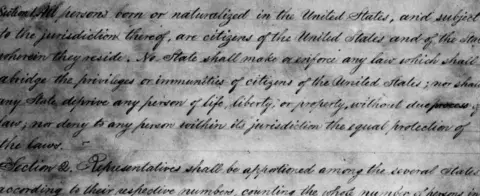 Section 1. All persons born or naturalized in the United States, and subject
to the jurisdiction thereof, are citizens of the United States and of the State
wherein they reside. No State shall make or enforce any law which shall
abridge the privileges or immunities of citizens of the United States; nor shall
any State deprive any person of life, liberty, or property, without due process of
law; nor deny to any person within its jurisdiction the equal protection of
the laws.
Section 2. Representatives shall be apportioned among the several States
according to their respective numbers, counting the whole number of persons in